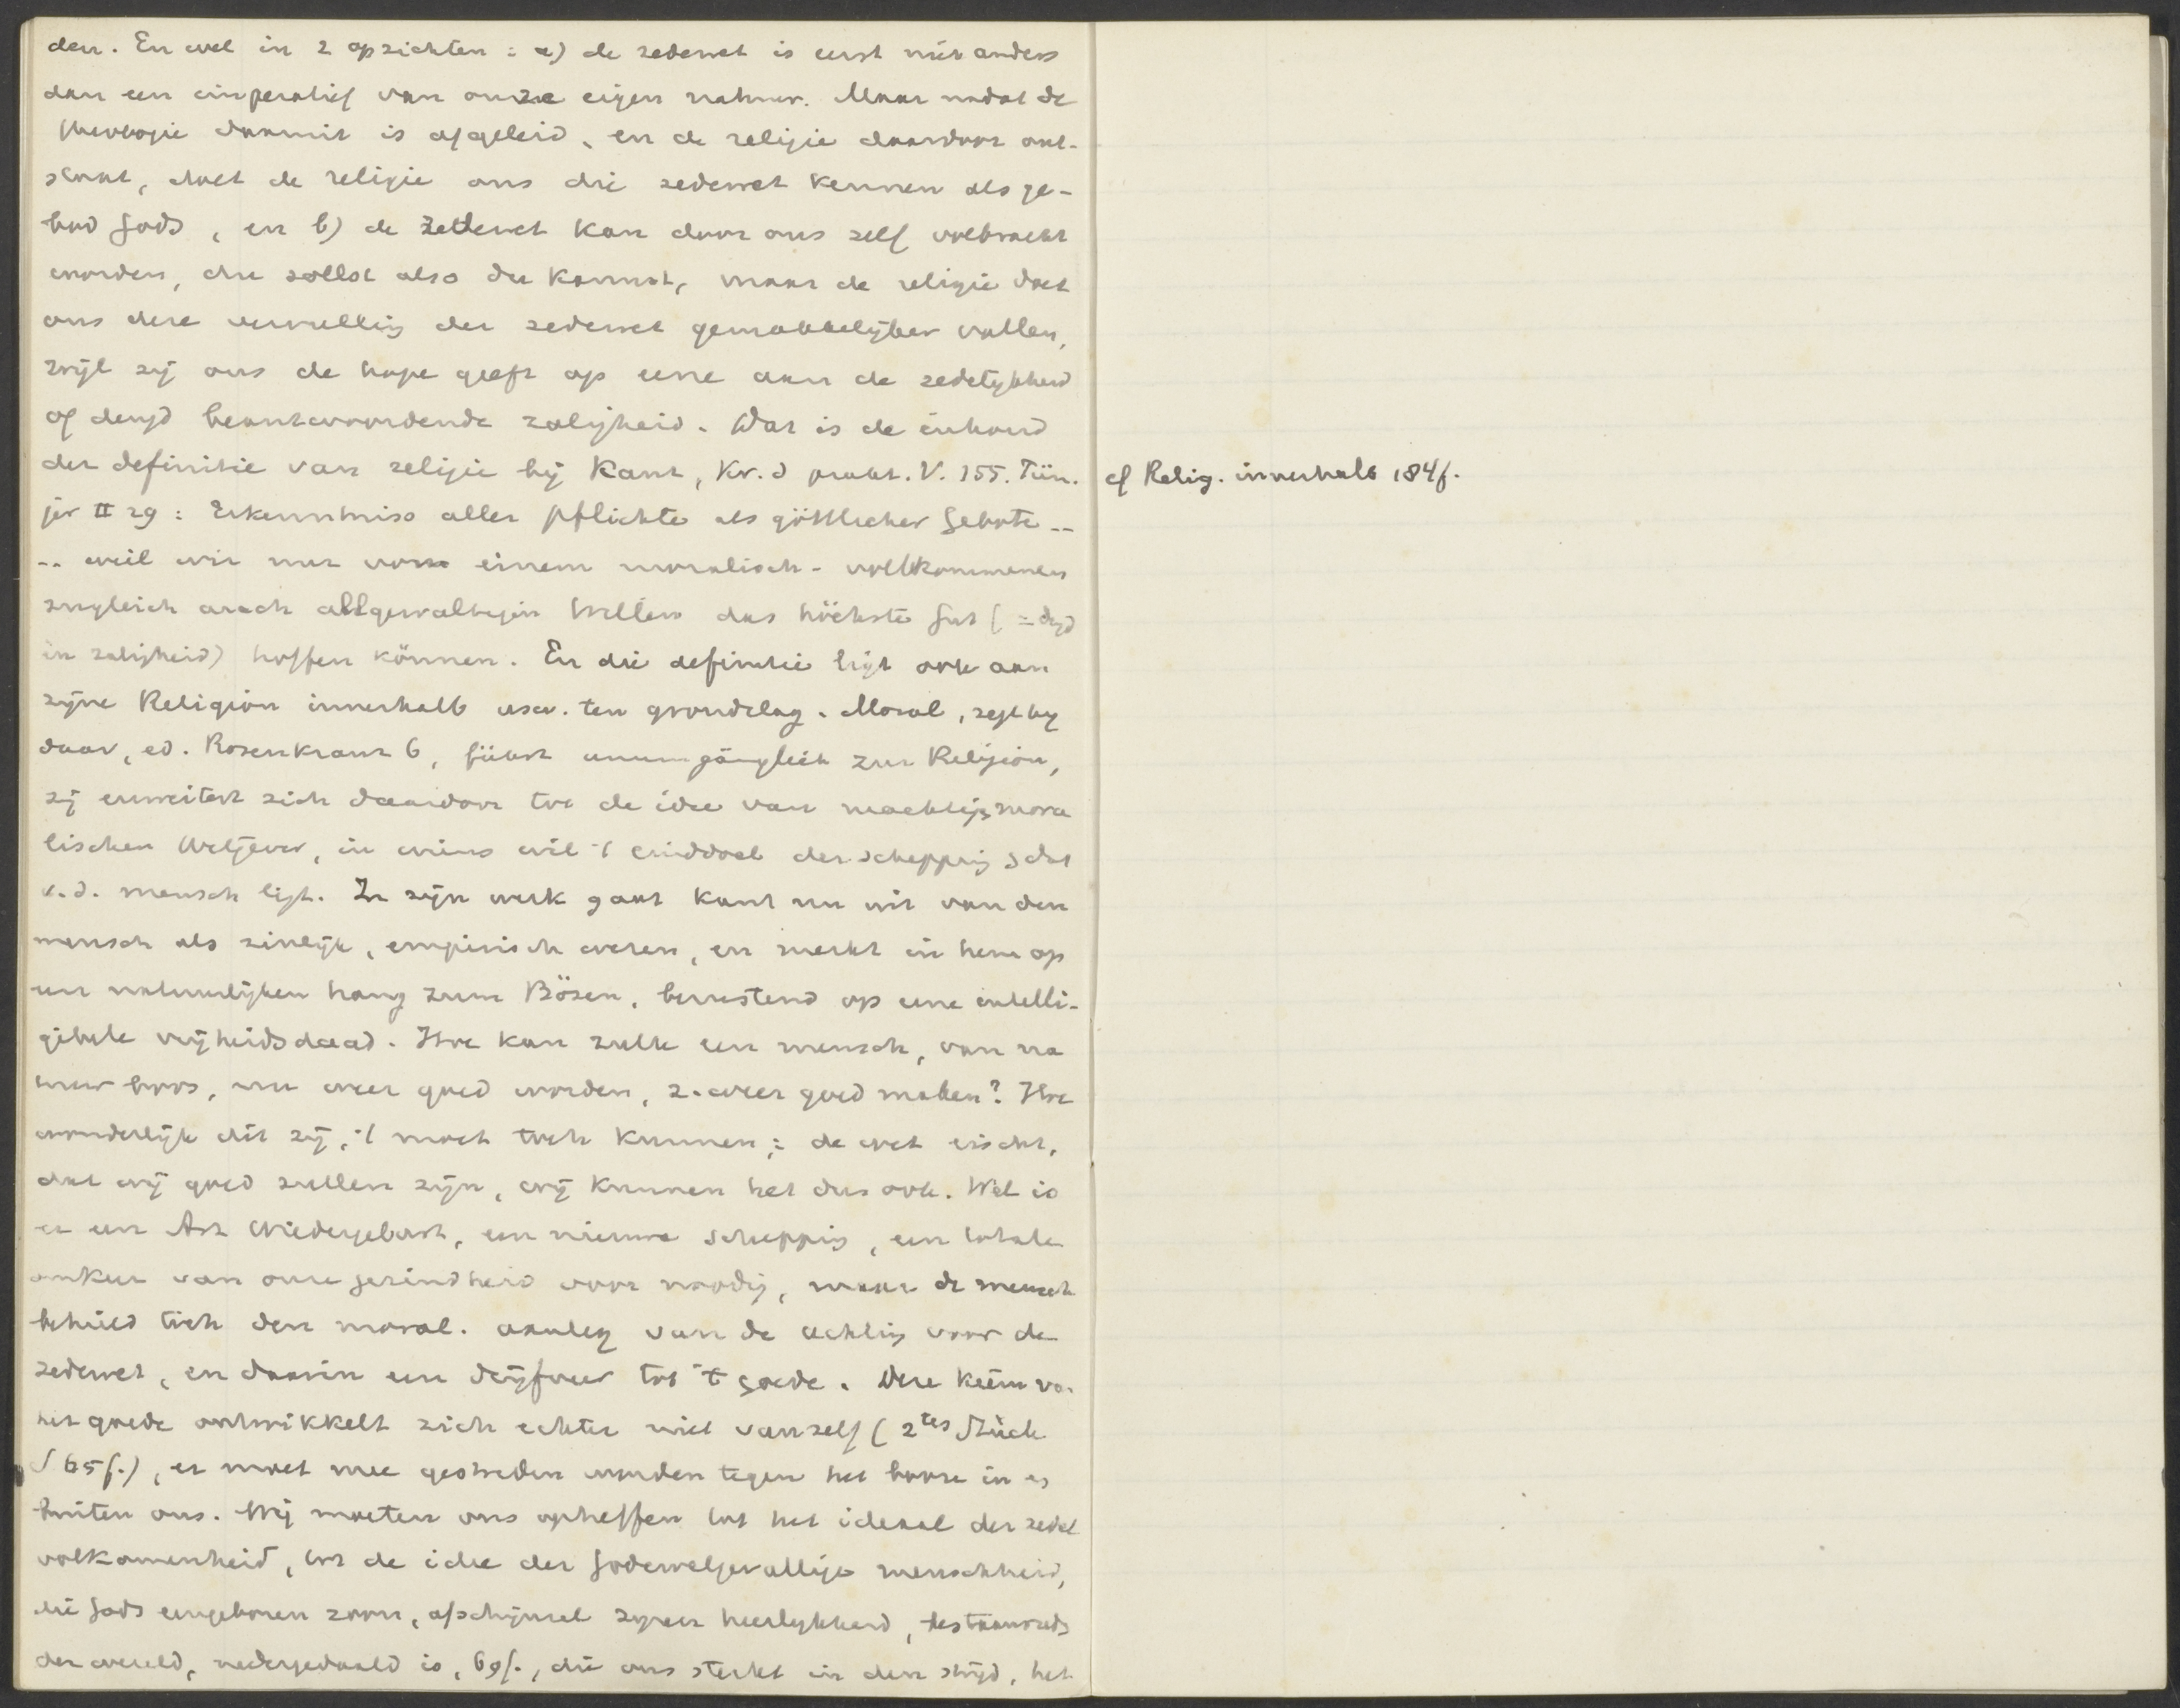 den. En wel in 2 opzichten: a) de zedewet is eerst niet anders
dan een imperatief van onze eigen natuur. Maar nadat de
theologie daaruit is afgeleid, en de religie daardoor ont-
staat, doet de religie ons die zedewet kennen als ge-
bod Gods, en b) de zedewet kan door ons zelf volbracht
worden, du sollst also du kannst, maar de religie doet
ons deze vervulling der zedewet gemakkelijker vallen,
wijl zij ons de hope geeft op eene aan de zedelijkheid
of deugd beantwoordende zaligheid. Dat is de inhoud
der definitie van religie bij Kant, Kr. d prakt. V. 155. Pün-
jer II 29: Erkenntniss aller Pflichten als göttlicher Gebote --
-- weil wir nur von einem moralisch-vollkommenen
zugleich auch allgewaltigen Willen das höchste Gut (= dgd
en zaligheid) hoffen können. En die definitie ligt ook aan
zijne Religion innerhalb usw. ten grondslag. Moral, zegt hij
daar, ed. Rosenkranz 6, führt unumgänglich zur Religion,
zij erweitert zich daardoor tot de idee van machtig, mora
lischen Wetgever, in wiens wil 't einddoel der schepping & dat
v.d. mensch ligt. In zijn werk gaat Kant nu uit van den
mensch als zinlijk, empirisch wezen, en merkt in hem op
een natuurlijken hang zum Bösen, berustend op eene intelli-
gibele vrijheidsdaad. Hoe kan zulk een mensch, van na
tuur boos, nu weer goed worden, z. weer goed maken? Hoe
wonderlijk dit zij, 't moet toch kunnen; de wet eischt,
dat wij goed zullen zijn, wij kunnen het dus ook. Wel is
er een Art Wiedergeburt, een nieuwe schepping, een totale
omkeer van onze gezindheid voor noodig, maar de mensch
behield toch den moral. aanleg van de achting voor de
zedewet, en daarin een drijfveer tot 't goede. Deze kiem va.
het goede ontwikkelt zich echter niet vanzelf (2tes Stück
S 65f.), er moet mee gestreden worden tegen het booze in en
buiten ons. Wij moeten ons opheffen tot het ideaal der zedel
volkomenheid, tot de idee der Godewelgevallige menschheid,
die Gods eengeboren zoon, afschijnsel zijner heerlijkheid,
der wereld, nedergedaald is, 69f., die ons sterkt in den strijd, het
cf Relig. innerhalb 184f.